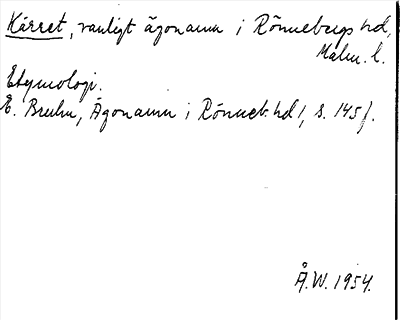 Kärret, vanligt ägonamn i Rönnebergs hd,
Malm. l.
Etymologi.
E. Bruhn, Ägonamn i Rönneb. hd 1, s. 145 f.
Å.W. 1954.